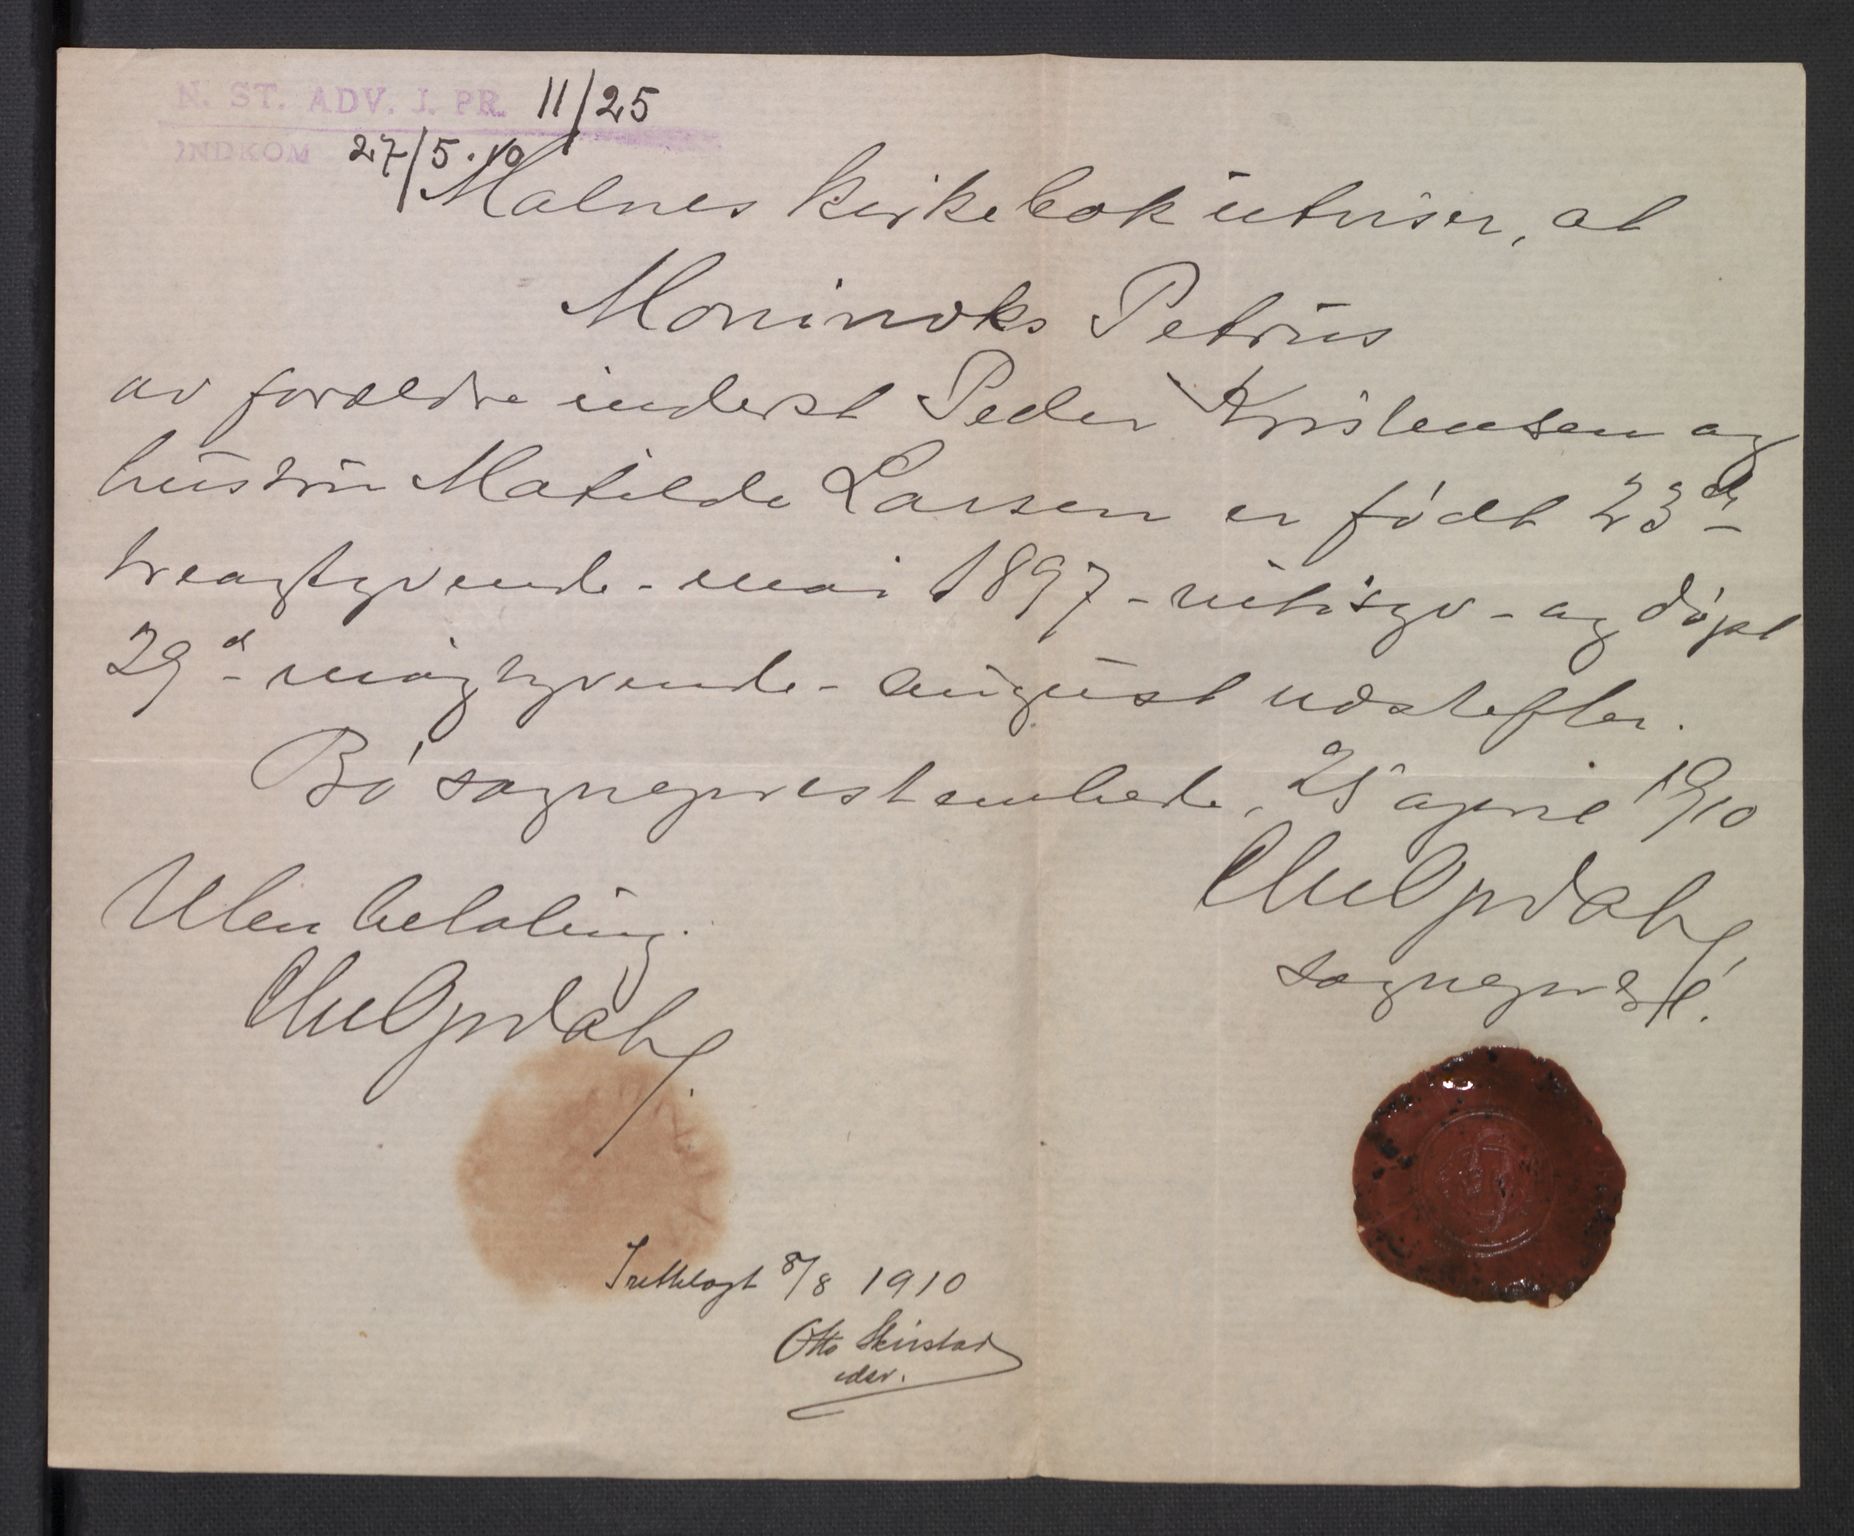 N. ST. ADV. I. PR. 11/25
INDKOM 27/5.10
Malnes kirkebok utviser, at
Moninoks Petrus
av forældre inderst Peder Kristensen og
hustru Matilde Larsen er født 23d
- treogtyvende - mai 1897 - nitisyv - og døpt
29d - niogtyvende - august næstefter.
Bø sogneprestembede, 25 april 1910
Chr Opdahl
sogneprest.
Uten betaling.
Chr Opdahl
Irettelagt 8/8 1910
Otto Skirstad
edsv.